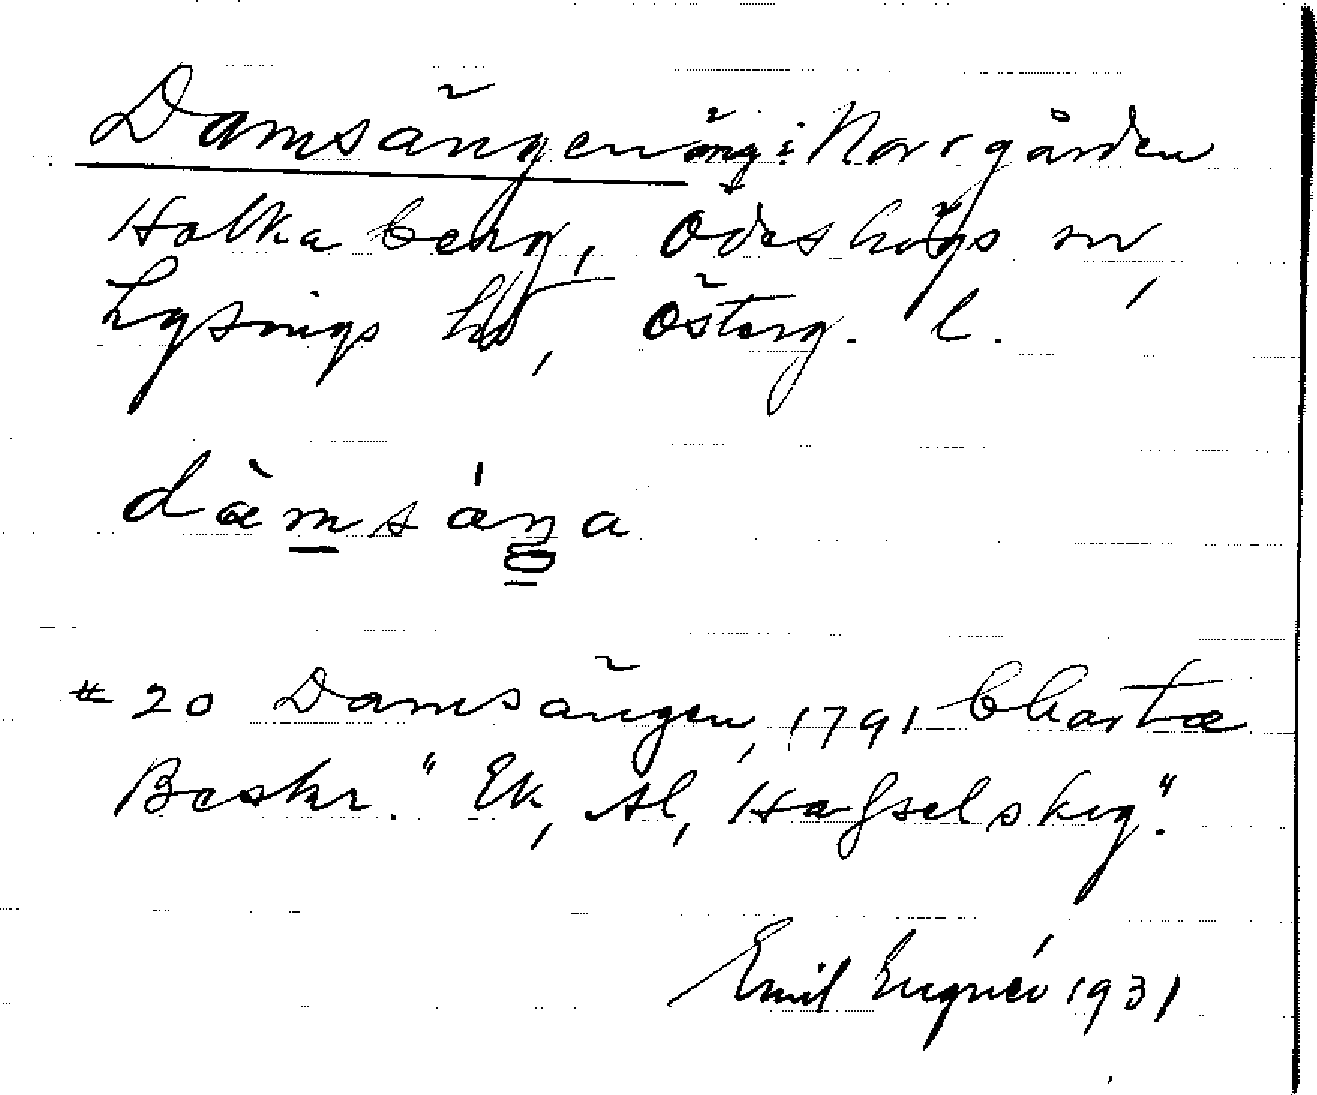 Damsängen äng i Norrgården
Holkaberg, Ödeshögs sn,
Lysings hd, Österg. l.
dæ̀msáŋa
# 20 Damsängen, 1791 Charta
Beskr. "Ek, Al, Hasselskog".
Emil 1931